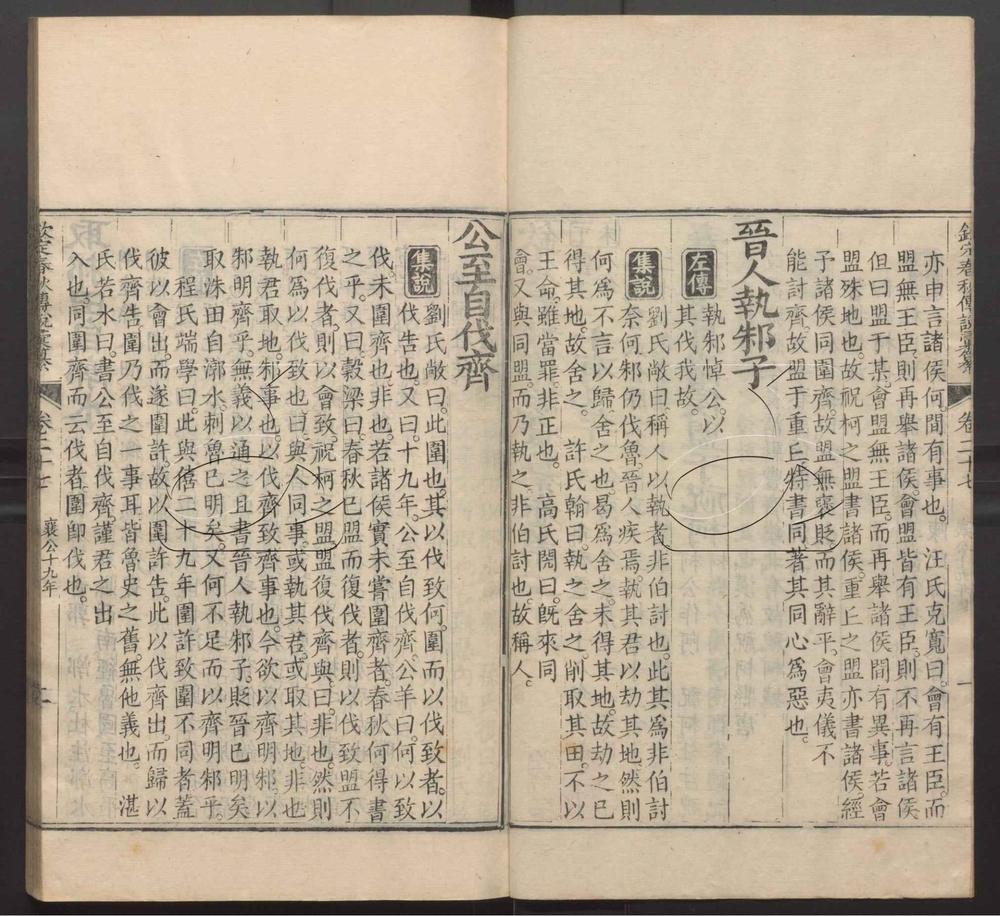 欽定春秋傳說彙纂 卷二十七 一
亦申言諸侯何間有事也。 汪氏克寬曰。會有王臣。而
盟無王臣。則再舉諸侯。會盟皆有王臣。則不再言諸侯
但曰盟于某。會盟無王臣。而再舉諸侯。間有異事。若會
盟殊地也。故祝柯之盟書諸侯。重丘之盟亦書諸侯。經
予諸侯同圍齊。故盟無襃貶而其辭平。會夷儀不
能討齊。故盟于重丘特書同。著其同心為惡也。
晉人執邾子
左傳 執邾悼公。以
其伐我故。
集說 劉氏敞曰。稱人以執者。非伯討也。此其為非伯討
奈何。邾仍伐魯。晉人疾焉。執其君以劫其地。然則
何為不言以歸。舍之也。曷為舍之。未得其地。故劫之已
得其地。故舍之。 許氏翰曰。執之舍之。削取其田。不以
王命。雖當罪。非正也。 高氏閌曰。旣來同
會。又與同盟。而乃執之。非伯討也。故稱人。
公至自伐齊
集說 劉氏敞曰。此圍也。其以伐致何。圍而以伐致者。以
伐告也。又曰。十九年。公至自伐齊。公羊曰。何以致
伐。未圍齊也。非也。若諸侯實未嘗圍齊者。春秋何得書
之乎。又曰。穀梁曰。春秋已盟而復伐者。則以伐致。盟不
復伐者。則以會致。祝柯之盟。盟復伐齊與。曰。非也。然則
何為以伐致也。曰。與人同事。或執其君。或取其地。非也
執君取地。邾事也。以伐齊致。齊事也。今欲以齊明邾。以
邾明齊乎。無義以通之。且書晉人執邾子。貶晉已明矣
取漷田自漷水。刺魯已明矣。又何不足而以齊明邾乎。
程氏端學曰。此與僖二十九年圍許致圍不同者。蓋
彼以會出。而遂圍許。故以圍許告。此以伐齊出而歸以
伐齊告。圍乃伐之一事耳。皆魯史之舊。無他義也。 湛
氏若水曰。書公至自伐齊。謹君之出
入也。同圍齊而云伐者。圍卽伐也。
欽定春秋傳說彙纂 卷二十七 襄公十九年